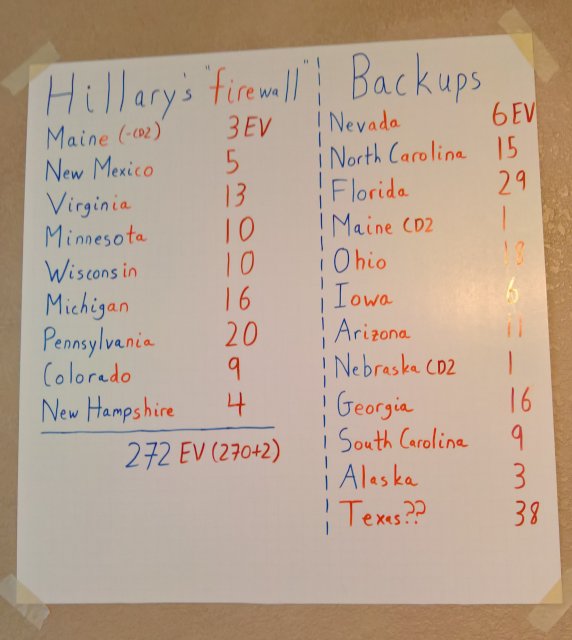 Hillary's "firewall"
Maine (-CD2) 3 EV
New Mexico 5
Virginia 13
Minnesota 10
Wisconsin 10
Michigan 16
Pennsylvania 20
Colorado 9
New Hampshire 4
272 EV (270+2)
Backups
Nevada 6 EV
North Carolina 15
Florida 29
Maine CD2 1
Ohio 18
Iowa 6
Arizona 11
Nebraska CD2 1
Georgia 16
South Carolina 9
Alaska 3
Texas?? 38